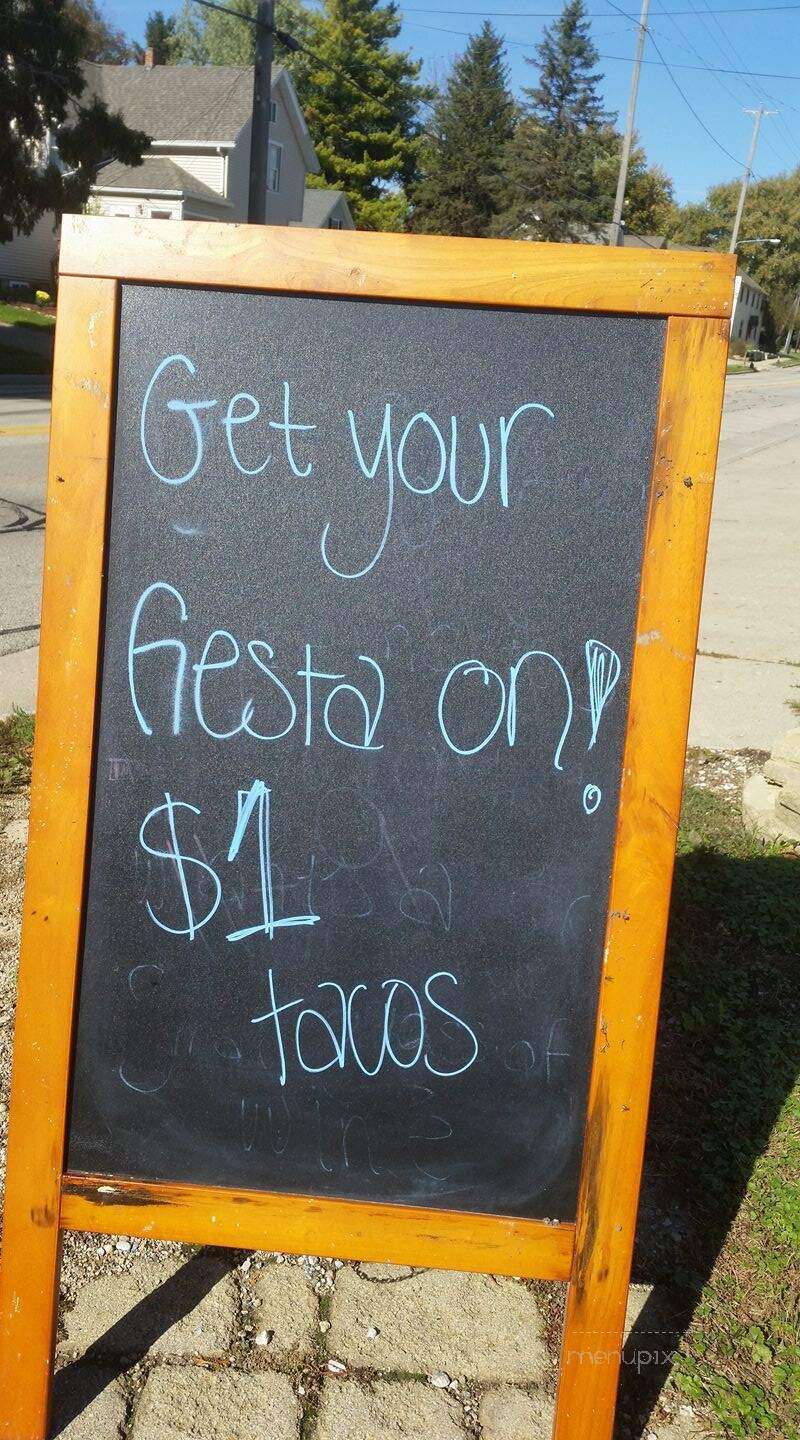 Get your
fiesta on!
$1
tacos
of
wine
menupix